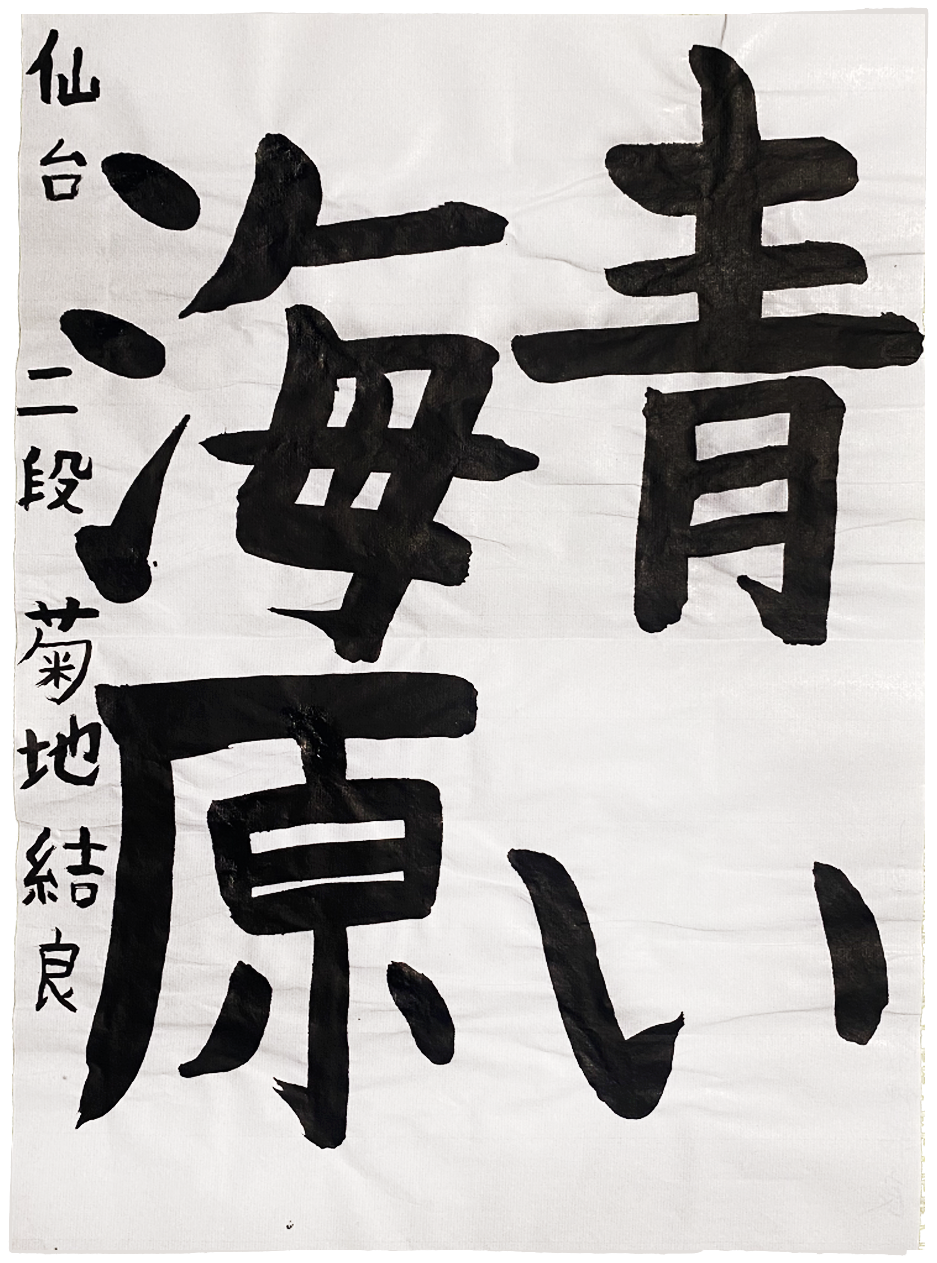 青い
海原
仙台 二段 菊地結良